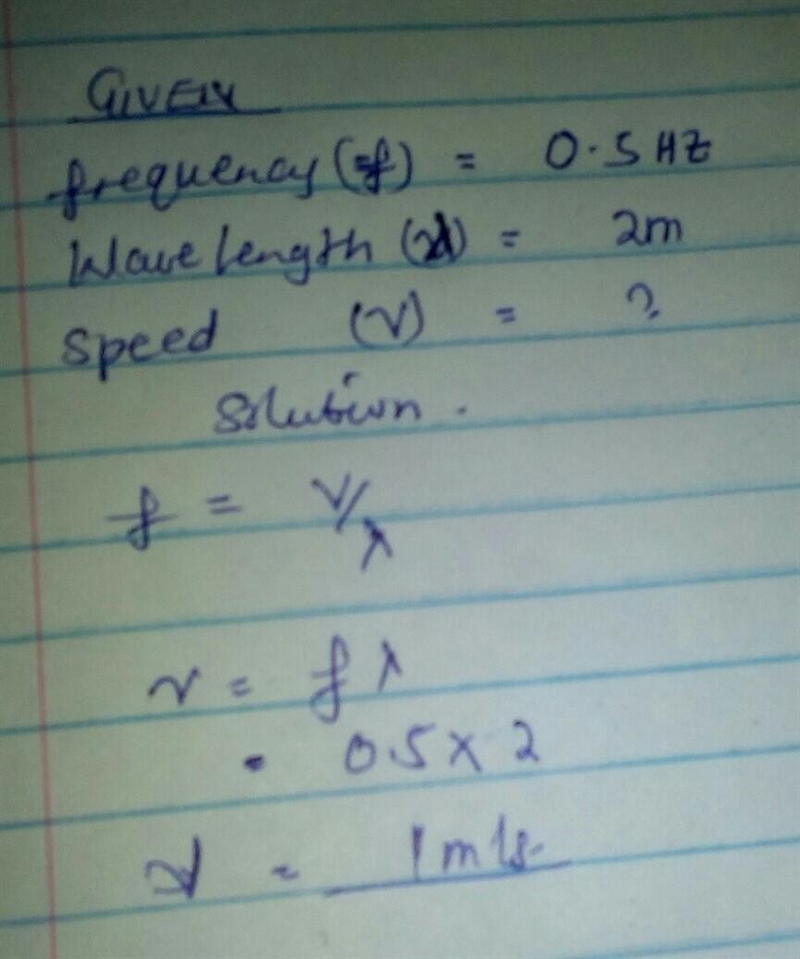 GIVEN
frequency (f) = 0.5 HZ
Wave length (λ) = 2m
Speed (v) = ?
Solution.
f = v/λ
v = fλ
= 0.5 x 2
= 1m/s